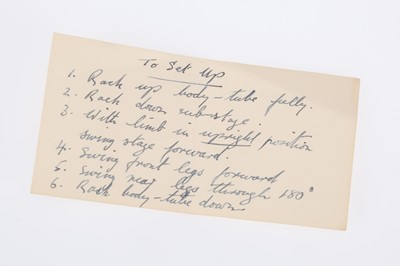 To Set Up
1. Rack up body-tube fully.
2. Rack down sub-stage.
3. With limb in upright position
swing stage forward.
4. Swing front legs forward
5. Swing rear legs through 180°
6. Rack body-tube down